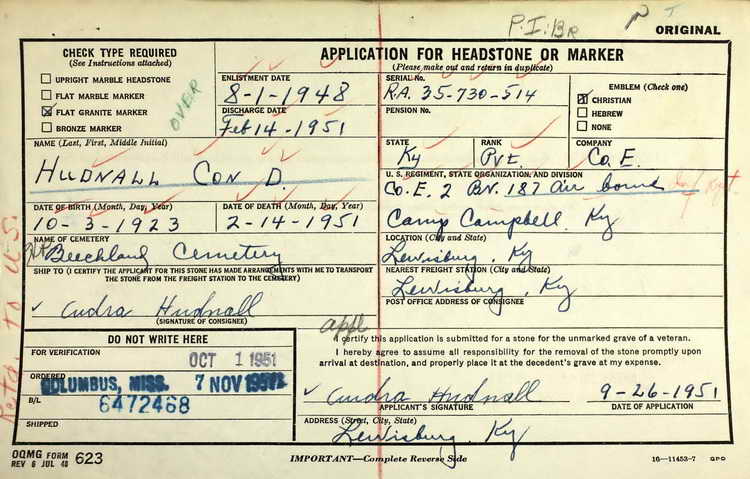 P.I. : BR
ORIGINAL
CHECK TYPE REQUIRED
(See Instructions attached)
UPRIGHT MARBLE HEADSTONE
FLAT MARBLE MARKER
FLAT GRANITE MARKER
BRONZE MARKER
OVER
APPLICATION FOR HEADSTONE OR MARKER
(Please make out and return in duplicate)
ENLISTMENT DATE
8-1-1948
DISCHARGE DATE
Feb 14-1951
SERIAL No.
R.A. 35-730-514
PENSION No.
EMBLEM (Check one)
CHRISTIAN
HEBREW
NONE
NAME (Last, First, Middle Initial)
HUDNALL CON D.
STATE
Ky
RANK
PVT.
COMPANY
Co. E.
U. S. REGIMENT, STATE ORGANIZATION, AND DIVISION
Co. E. 2 BN. 187 air borne
Camp Campbell, Ky
DATE OF BIRTH (Month, Day, Year)
10-3-1923
DATE OF DEATH (Month, Day, Year)
2-14-1951
NAME OF CEMETERY
Beechland Cemetery
LOCATION (City and State)
Lewisburg, Ky
SHIP TO (I CERTIFY THE APPLICANT FOR THIS STONE HAS MADE ARRANGEMENTS WITH ME TO TRANSPORT
THE STONE FROM THE FREIGHT STATION TO THE CEMETERY)
Audra Hudnall
(SIGNATURE OF CONSIGNEE)
NEAREST FREIGHT STATION (City and State)
Lewisburg, Ky
POST OFFICE ADDRESS OF CONSIGNEE
DO NOT WRITE HERE
FOR VERIFICATION
OCT 1 1951
ORDERED
COLUMBUS, MISS. 7 NOV 1951
B/L
6472468
SHIPPED
appl
I certify this application is submitted for a stone for the unmarked grave of a veteran.
I hereby agree to assume all responsibility for the removal of the stone promptly upon
arrival at destination, and properly place it at the decedent's grave at my expense.
Audra Hudnall
9-26-1951
APPLICANT'S SIGNATURE
DATE OF APPLICATION
ADDRESS (Street, City, State)
Lewisburg, Ky
OQMG FORM
REV 6 JUL 48
623
IMPORTANT—Complete Reverse Side
16—11453-7 GPO